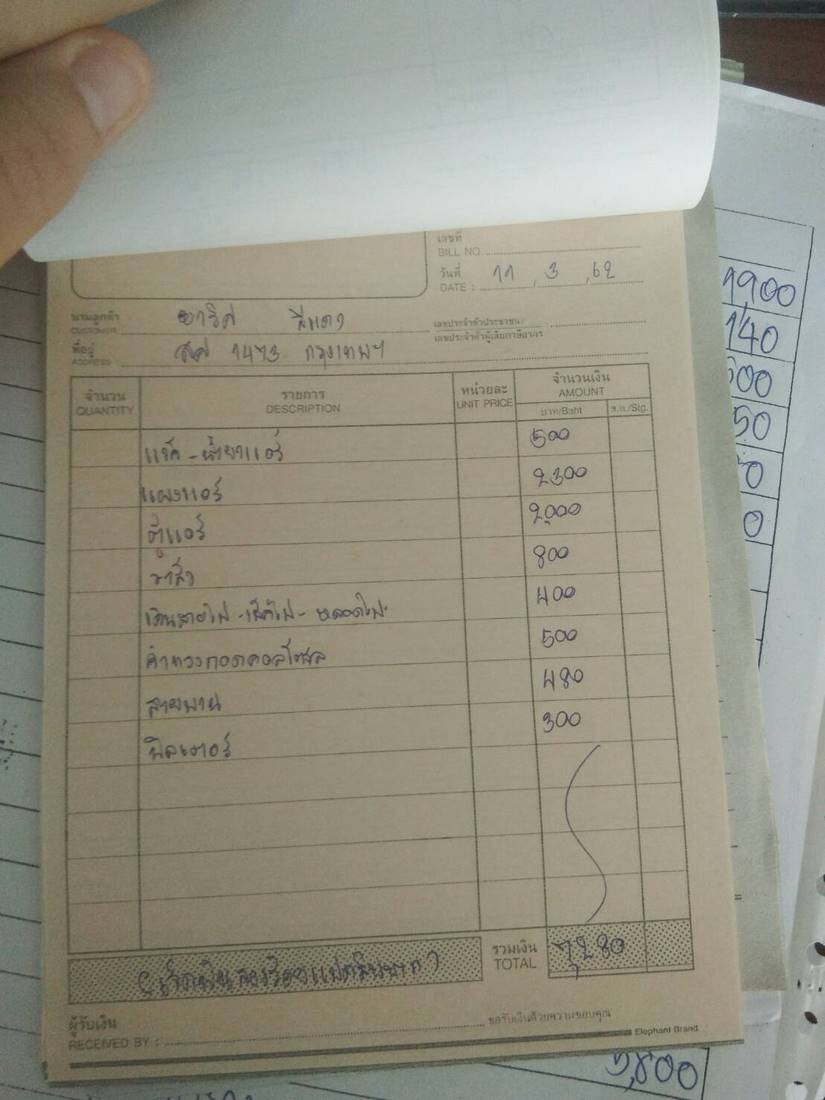 เลขที่
BILL NO.
วันที่ 11 , 3 , 62
DATE :
นามลูกค้า
CUSTOMER
เลขประจำตัวประชาชน/
เลขประจำตัวผู้เสียภาษีอากร
ที่อยู่ 1473 กรุงเทพฯ
ADDRESS
จำนวน รายการ หน่วยละ จำนวนเงิน
QUANTITY DESCRIPTION UNIT PRICE AMOUNT
บาท/Baht ส.ต./Stg.
น้ำยาแอร์ 500
แผงแอร์ 2300
ตู้แอร์ 2,000
800
เดินสายไฟ - - หลอดไฟ 400
500
สายพาน 480
ฟิลเตอร์ 300
(เจ็ดพันสองร้อยแปดสิบบาท) รวมเงิน 7,280
TOTAL
ผู้รับเงิน ขอรับเงินด้วยความขอบคุณ
RECEIVED BY : Elephant Brand
1900
140